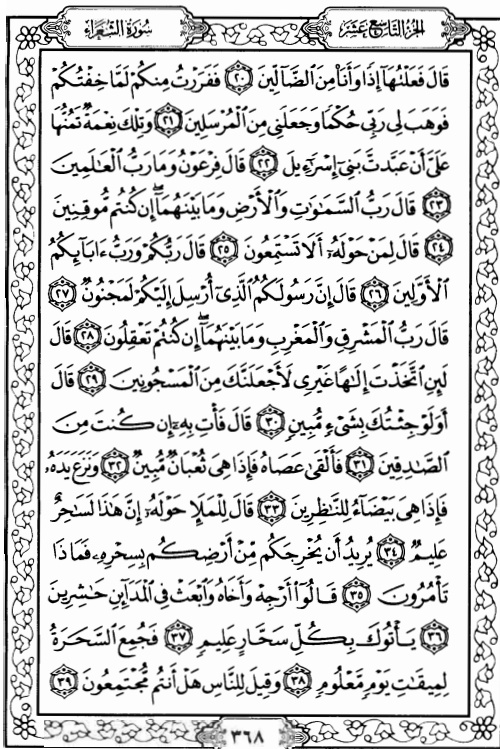 الجزء التاسع عشر
سورة الشعراء
قَالَ فَعَلْتُهَآ إِذًا وَأَنَا۠ مِنَ ٱلضَّآلِّينَ ﴿٢٠﴾ فَفَرَرْتُ مِنكُمْ لَمَّا خِفْتُكُمْ
فَوَهَبَ لِى رَبِّى حُكْمًا وَجَعَلَنِى مِنَ ٱلْمُرْسَلِينَ ﴿٢١﴾ وَتِلْكَ نِعْمَةٌ تَمُنُّهَا
عَلَىَّ أَنْ عَبَّدتَّ بَنِىٓ إِسْرَٰٓءِيلَ ﴿٢٢﴾ قَالَ فِرْعَوْنُ وَمَا رَبُّ ٱلْعَٰلَمِينَ
﴿٢٣﴾ قَالَ رَبُّ ٱلسَّمَٰوَٰتِ وَٱلْأَرْضِ وَمَا بَيْنَهُمَآ ۖ إِن كُنتُم مُّوقِنِينَ
﴿٢٤﴾ قَالَ لِمَنْ حَوْلَهُۥٓ أَلَا تَسْتَمِعُونَ ﴿٢٥﴾ قَالَ رَبُّكُمْ وَرَبُّ ءَابَآئِكُمُ
ٱلْأَوَّلِينَ ﴿٢٦﴾ قَالَ إِنَّ رَسُولَكُمُ ٱلَّذِىٓ أُرْسِلَ إِلَيْكُمْ لَمَجْنُونٌ ﴿٢٧﴾
قَالَ رَبُّ ٱلْمَشْرِقِ وَٱلْمَغْرِبِ وَمَا بَيْنَهُمَآ ۖ إِن كُنتُمْ تَعْقِلُونَ ﴿٢٨﴾ قَالَ
لَئِنِ ٱتَّخَذْتَ إِلَٰهًا غَيْرِى لَأَجْعَلَنَّكَ مِنَ ٱلْمَسْجُونِينَ ﴿٢٩﴾ قَالَ
أَوَلَوْ جِئْتُكَ بِشَىْءٍ مُّبِينٍ ﴿٣٠﴾ قَالَ فَأْتِ بِهِۦٓ إِن كُنتَ مِنَ
ٱلصَّٰدِقِينَ ﴿٣١﴾ فَأَلْقَىٰ عَصَاهُ فَإِذَا هِىَ ثُعْبَانٌ مُّبِينٌ ﴿٣٢﴾ وَنَزَعَ يَدَهُۥ
فَإِذَا هِىَ بَيْضَآءُ لِلنَّٰظِرِينَ ﴿٣٣﴾ قَالَ لِلْمَلَإِ حَوْلَهُۥٓ إِنَّ هَٰذَا لَسَٰحِرٌ
عَلِيمٌ ﴿٣٤﴾ يُرِيدُ أَن يُخْرِجَكُم مِّنْ أَرْضِكُم بِسِحْرِهِۦ فَمَاذَا
تَأْمُرُونَ ﴿٣٥﴾ قَالُوٓا۟ أَرْجِهْ وَأَخَاهُ وَٱبْعَثْ فِى ٱلْمَدَآئِنِ حَٰشِرِينَ
﴿٣٦﴾ يَأْتُوكَ بِكُلِّ سَحَّارٍ عَلِيمٍ ﴿٣٧﴾ فَجُمِعَ ٱلسَّحَرَةُ
لِمِيقَٰتِ يَوْمٍ مَّعْلُومٍ ﴿٣٨﴾ وَقِيلَ لِلنَّاسِ هَلْ أَنتُم مُّجْتَمِعُونَ ﴿٣٩﴾
٣٦٨